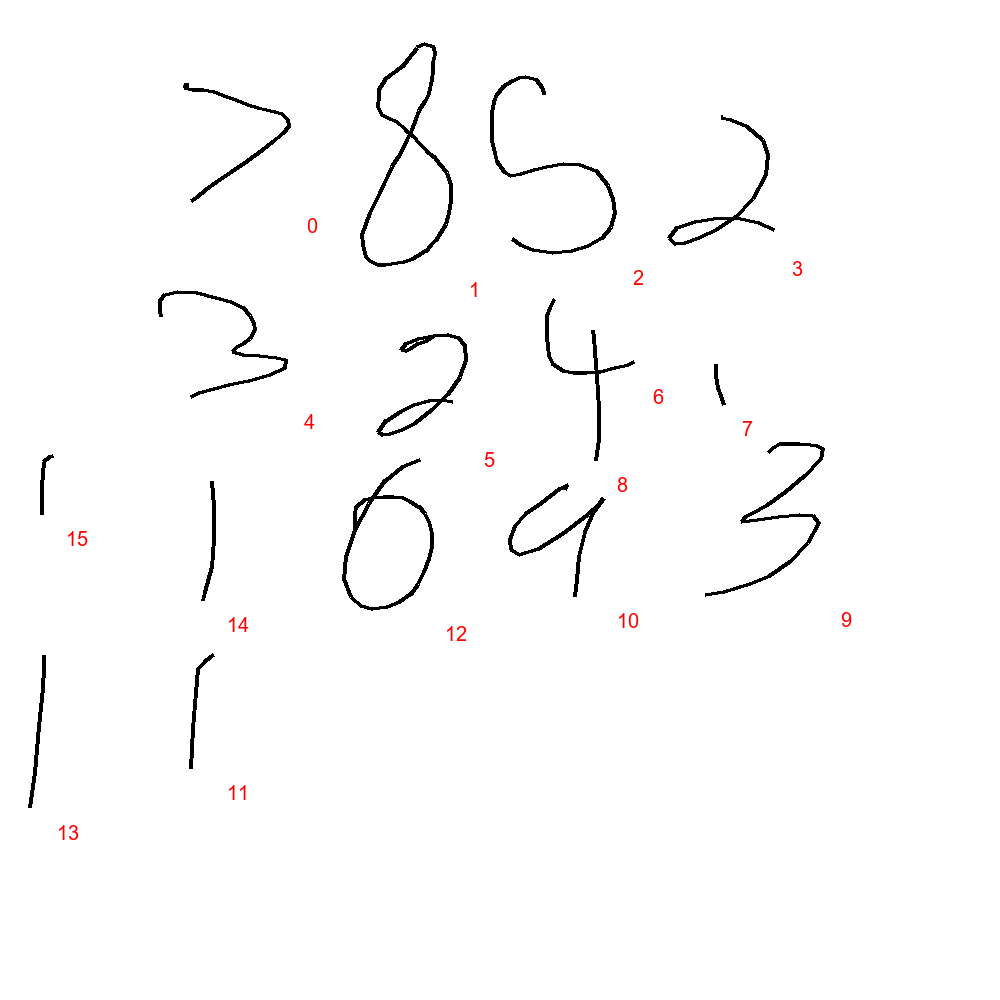 > 8 5 2
0 1 2 3
3 2 4 1
4 5 6 7
1 1 6 9 3
15 14 12 8 10 9
1 1
13 11